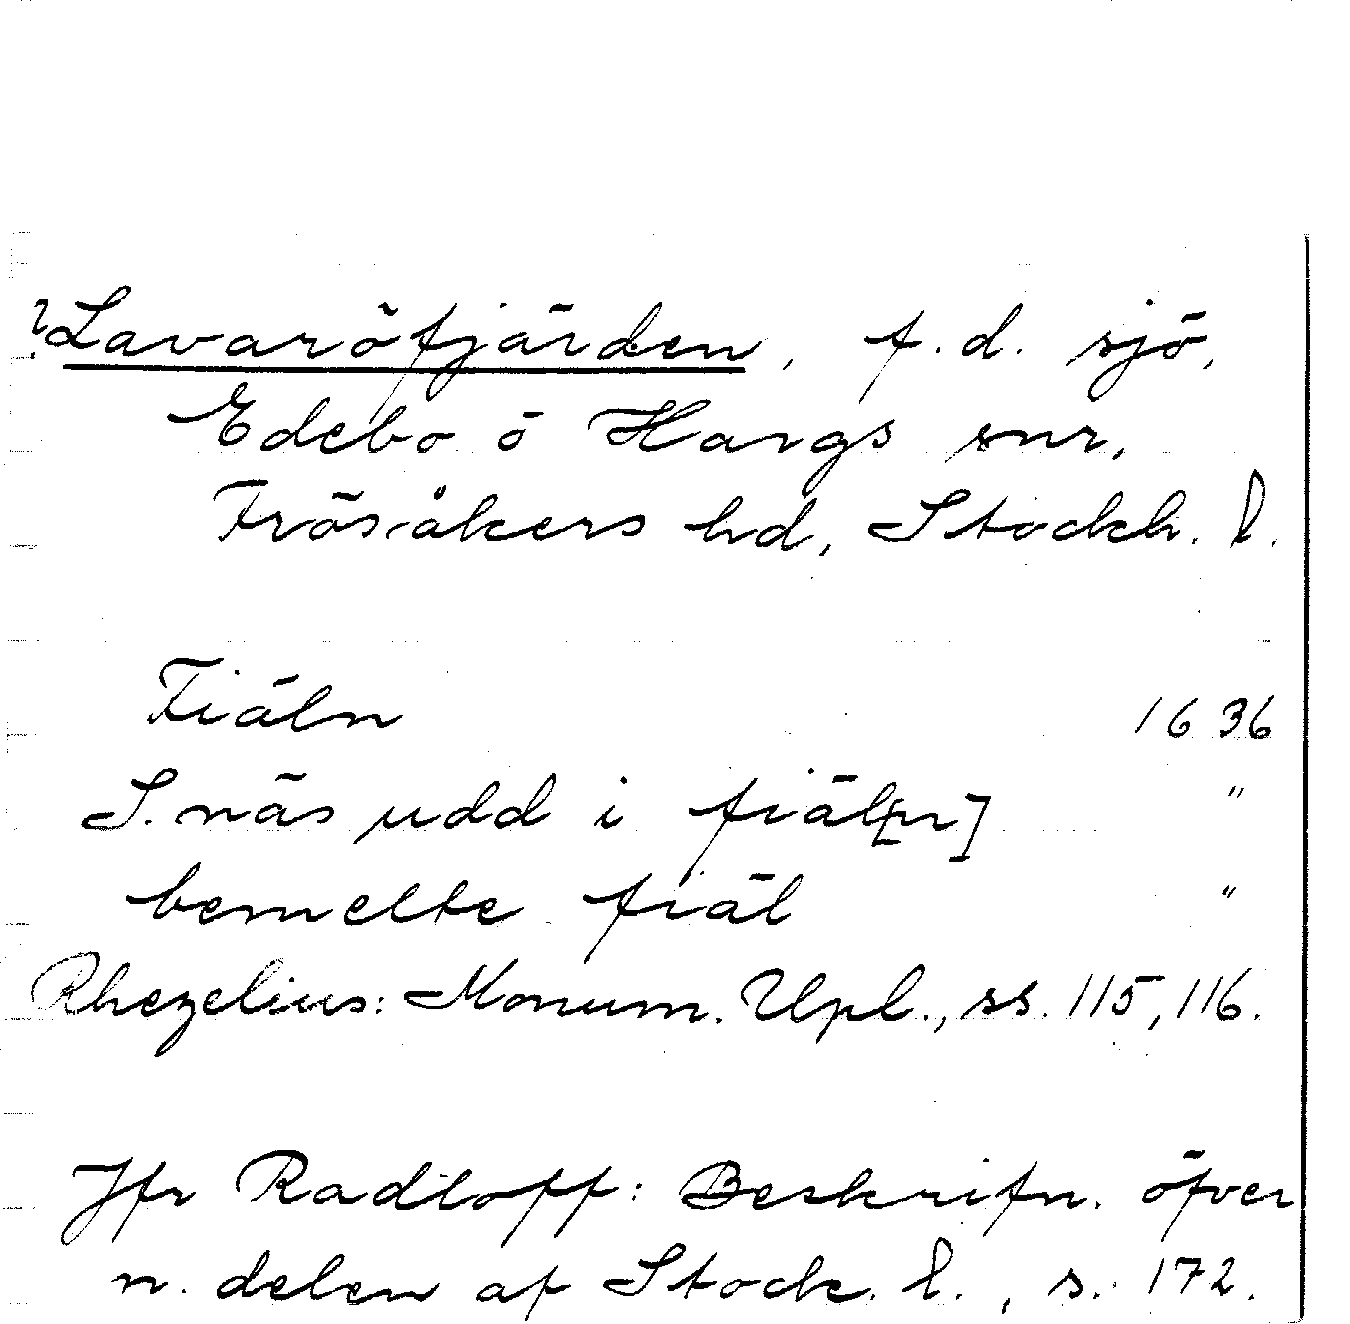 ? Lavaröfjärden, f.d. sjö,
Edebo o Hargs snr,
Frösåkers hd, Stockh. l.
Fiäln 1636
S. näs udd i fiäl[n] "
bemelte fiäl "
Rhezelius: Monum. Upl., ss. 115, 116.
Jfr Radloff: Beskrifn. öfver
n. delen af Stock. l., s. 172.